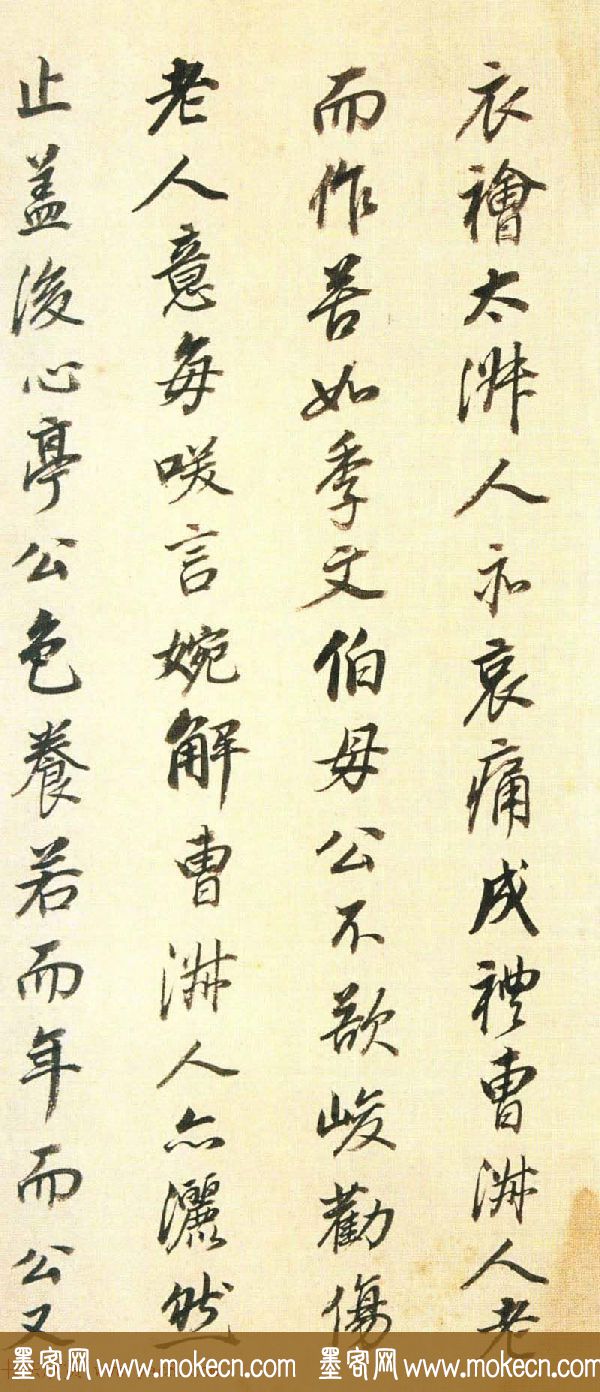 衣襘太淑人亦哀痛成禮曹淑人老
而作苦如季文伯母公不欲峻勸傷
老人意每咲言婉解曹淑人亦灑然
止盖浚心亭公色養若而年而公又
墨客网 www.mokecn.com 墨客网 www.mokecn.com